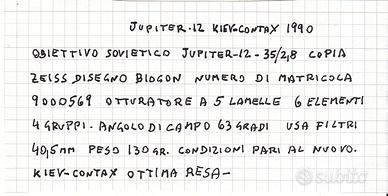 JUPITER-12 KIEV-CONTAX 1990
OBIETTIVO SOVIETICO JUPITER-12-35/2,8 COPIA
ZEISS DISEGNO BIOGON NUMERO DI MATRICOLA
9000569 OTTURATORE A 5 LAMELLE 6 ELEMENTI
4 GRUPPI. ANGOLO DI CAMPO 63 GRADI USA FILTRI
40,5mm PESO 130 GR. CONDIZIONI PARI AL NUOVO.
KIEV-CONTAX OTTIMA RESA-
subito